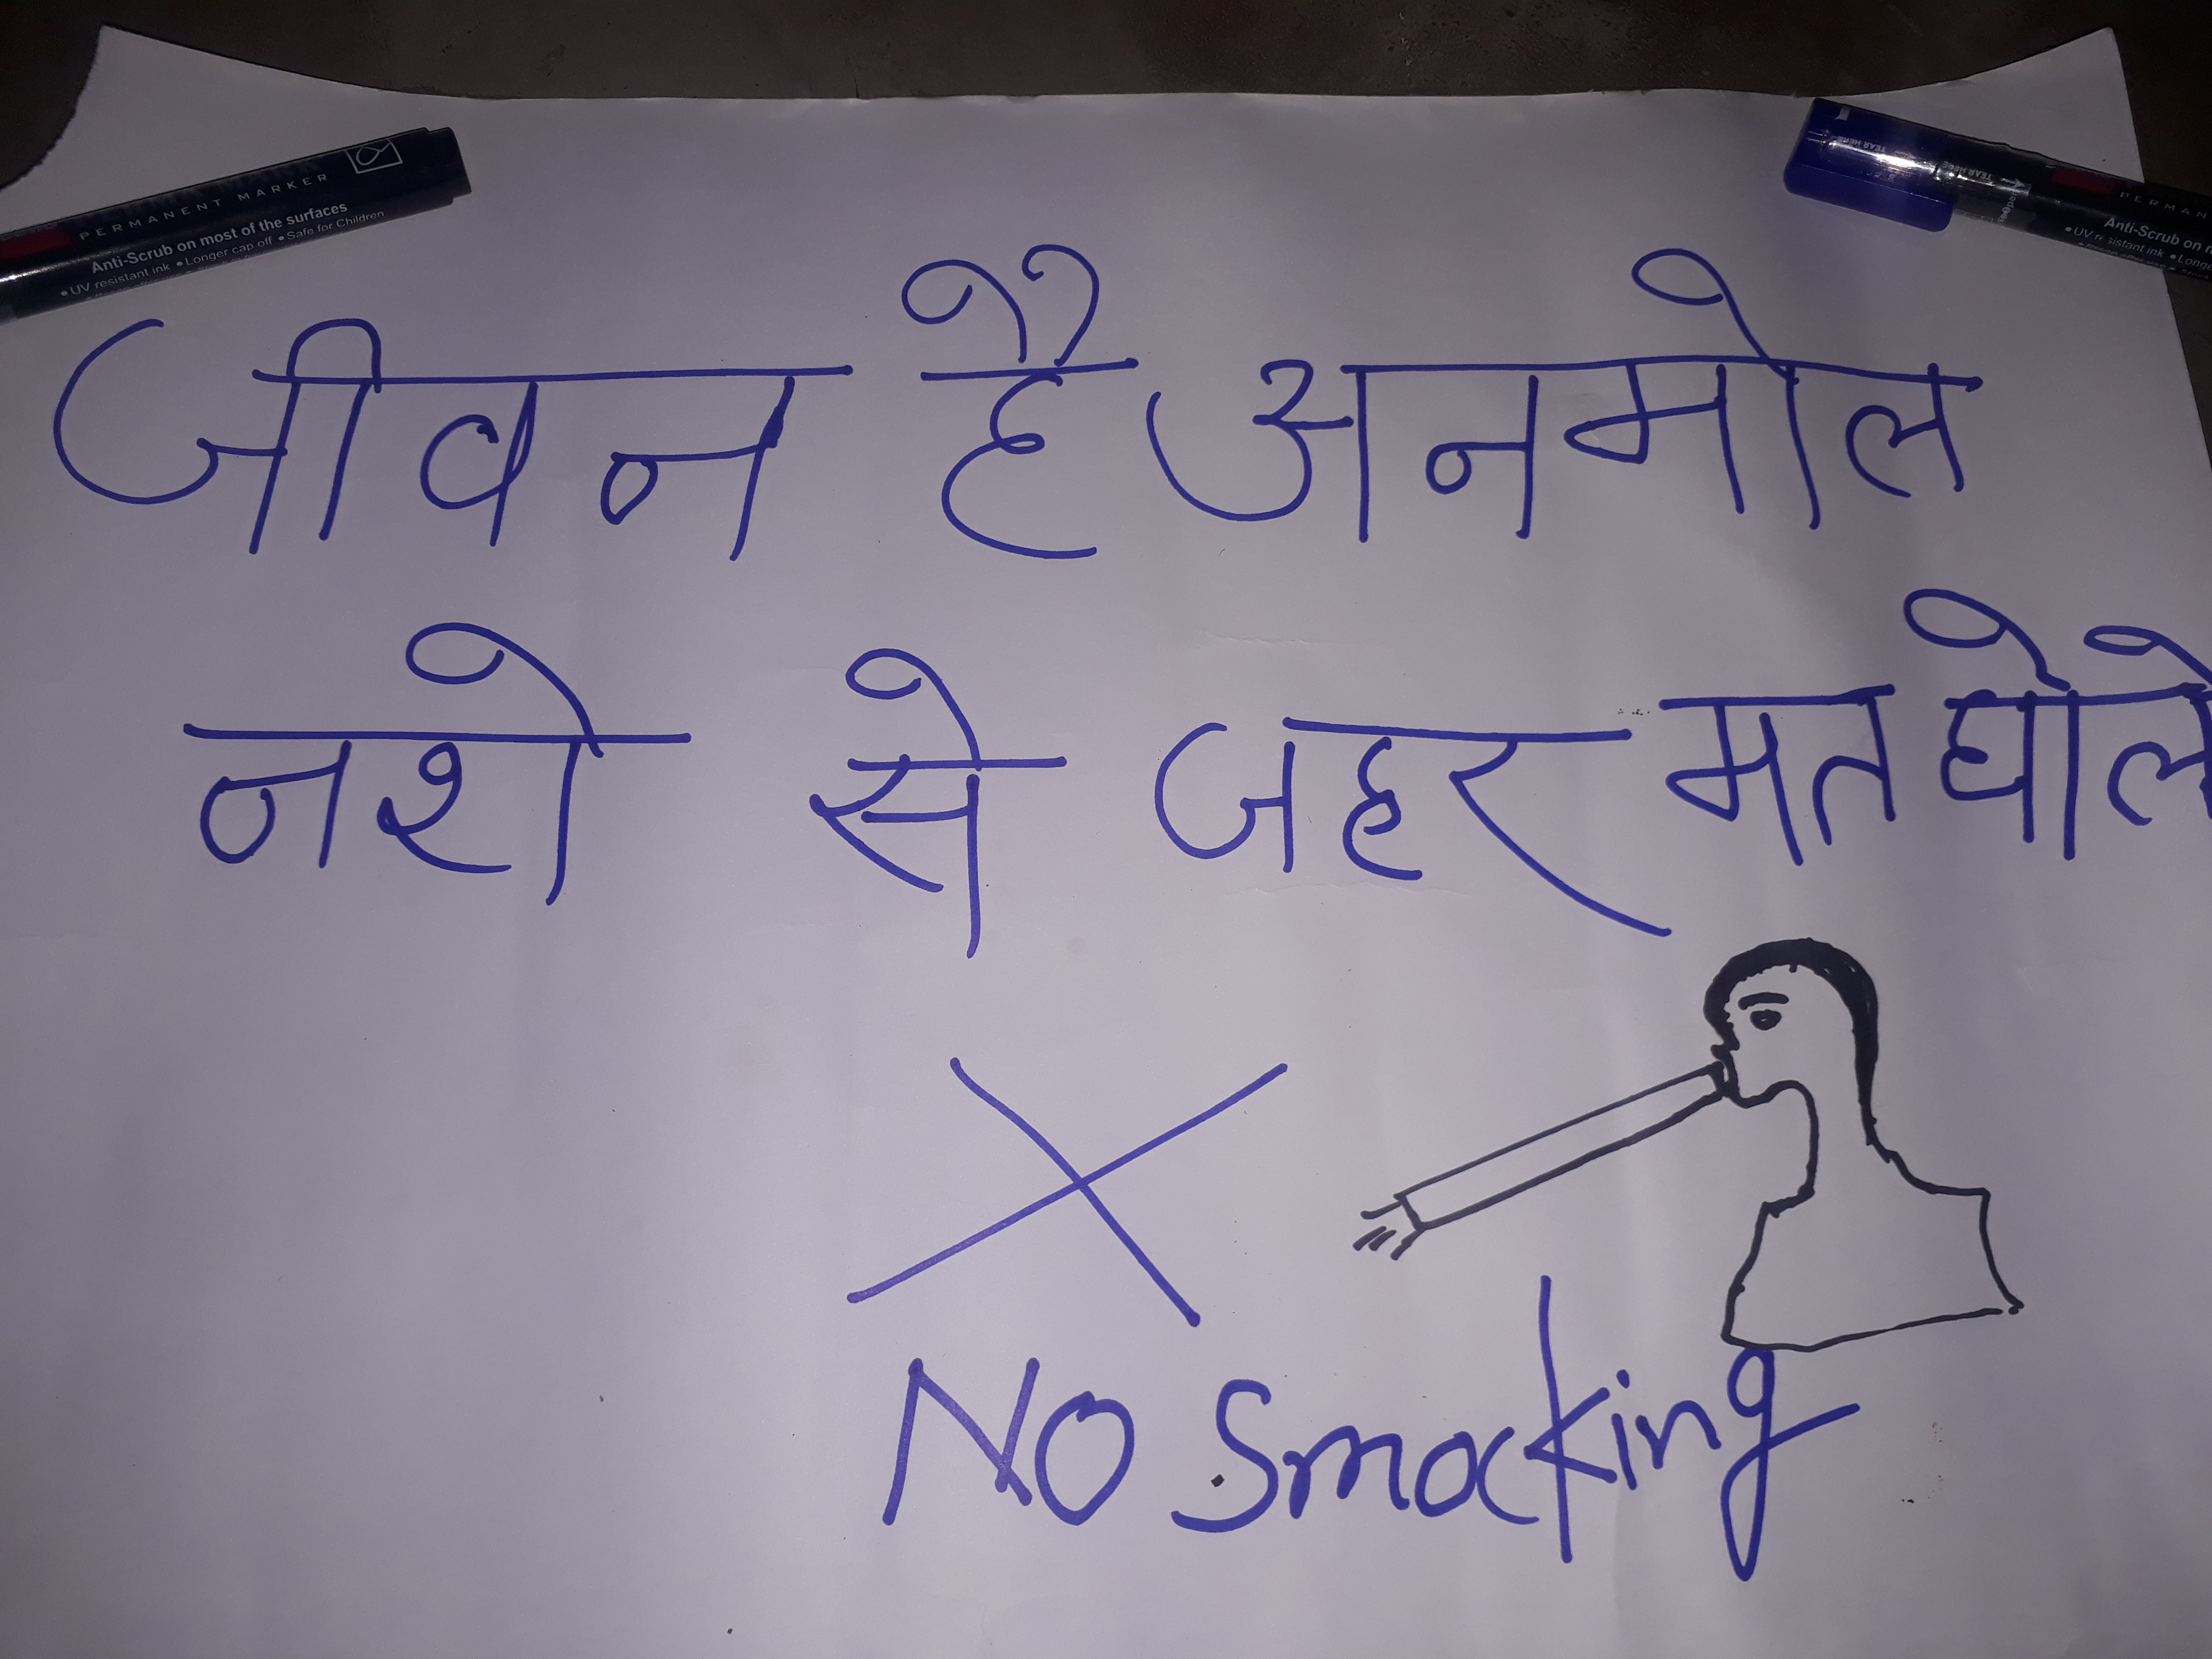 PERMANENT MARKER
Anti-Scrub on most of the surfaces
• UV resistant ink • Longer cap off • Safe for Children
TEAR HERE
TEAR HERE
PERMAN
Anti-Scrub on m
• UV resistant ink • Longe
जीवन है अनमोल
नशो से जहर मत घोले
NO Smocking